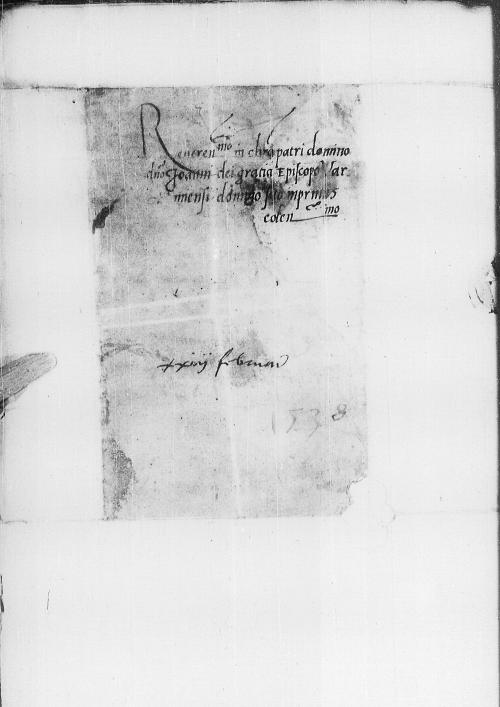 Reveren^mo in chro patri domino
dno Joanni dei gratia Episcopo Var
miensi domino suo imprimis
colen^mo
xxiiij februarij
1538